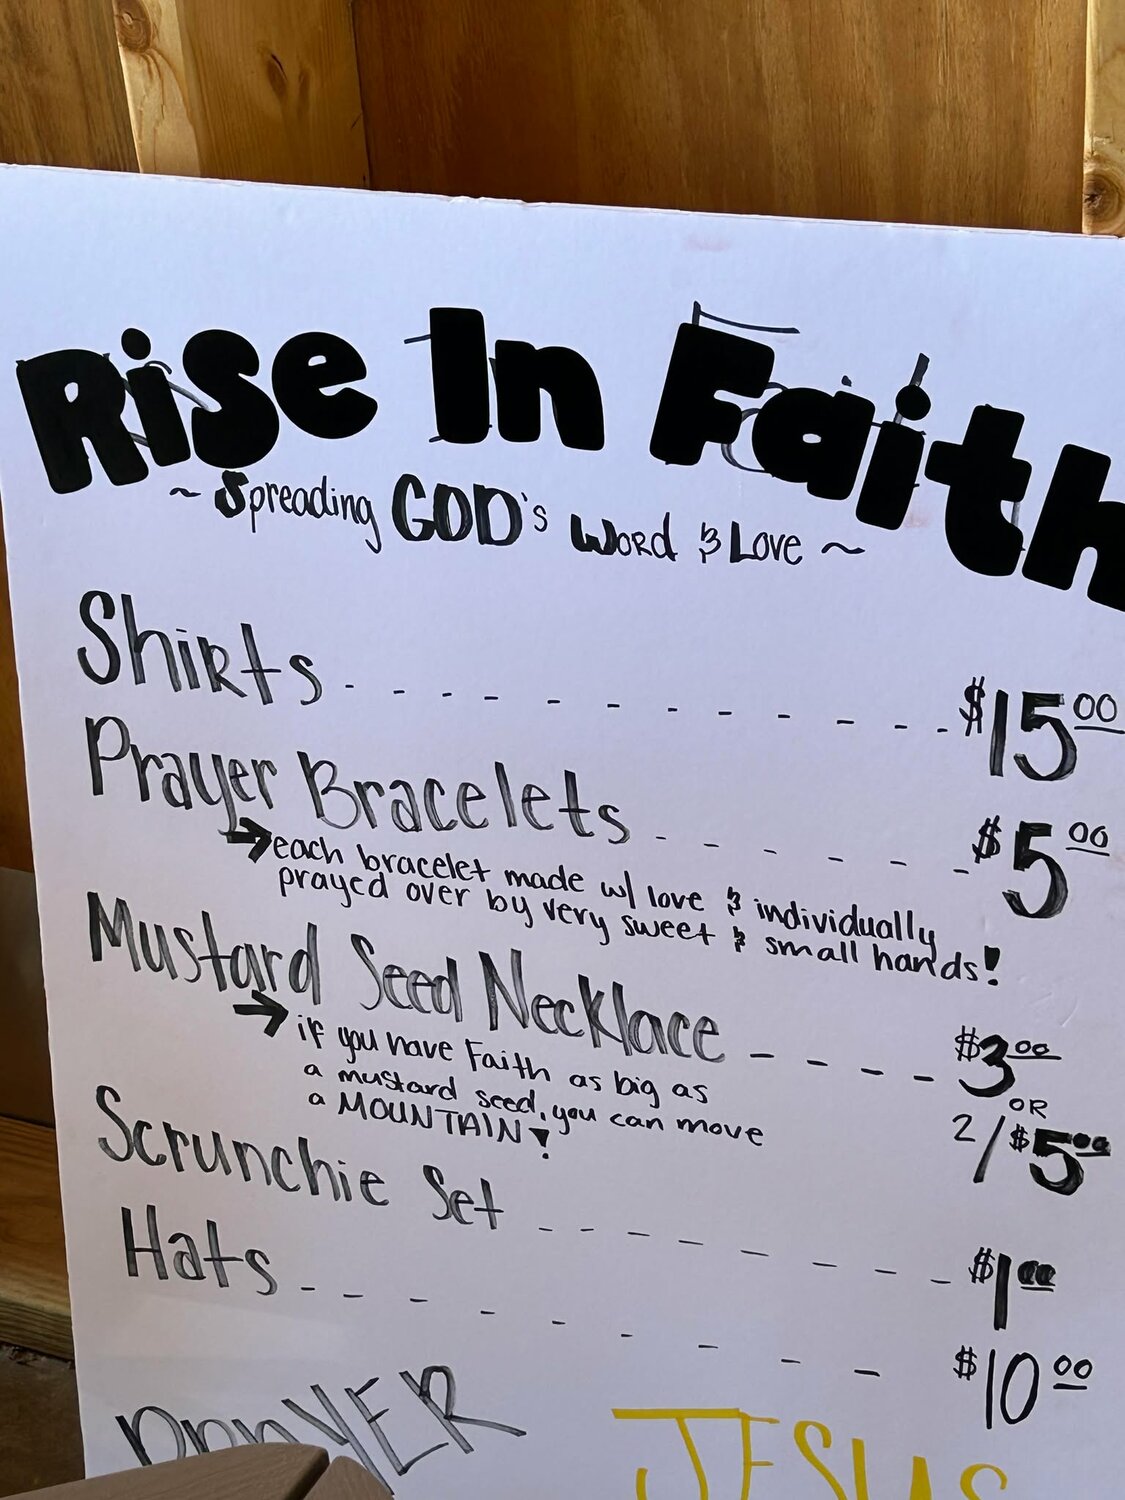 Rise In Faith
~ Spreading GOD's Word & Love ~
Shirts - - - - - - - - - - - $15.00
Prayer Bracelets - - - - - - $5.00
→ each bracelet made w/ love & individually
prayed over by very sweet & small hands!
Mustard Seed Necklace - - - - $3.00
→ if you have Faith as big as
a mustard seed, you can move
a MOUNTAIN!
OR
2/$5.00
Scrunchie Set - - - - - - - - $1.00
Hats - - - - - - - - - $10.00
PRAYER
JESUS